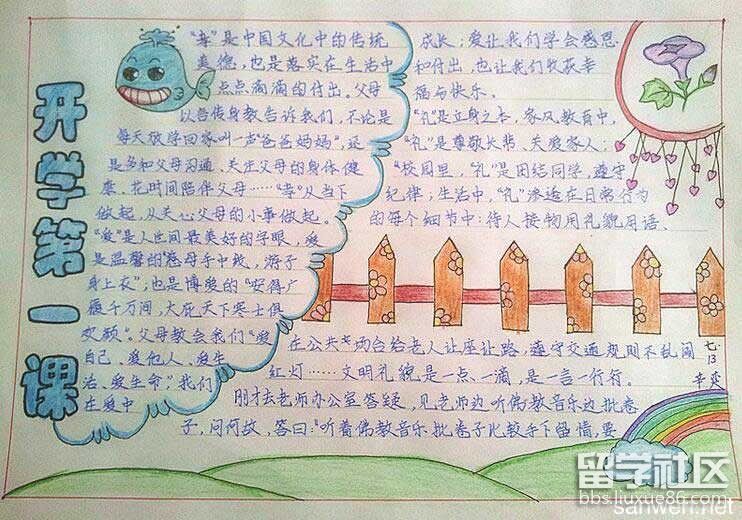 开学第一课
"孝"是中国文化中的传统
美德,也是落实在生活中
点点滴滴的付出。父母
以言传身教告诉我们,不论是
每天放学回家叫一声"爸爸妈妈",还
是多和父母沟通、关注父母的身体健
康、花时间陪伴父母……"孝"从当下
做起,从关心父母的小事做起。
"爱"是人世间最美好的字眼,爱
是温馨的"慈母手中线,游子
身上衣",也是博爱的"安得广
厦千万间,大庇天下寒士俱
欢颜"。父母教会我们"爱
自己、爱他人、爱生
活、爱生命",我们
在爱中
成长;爱让我们学会感恩
和付出,也让我们收获幸
福与快乐。
"礼"是立身之本,家风、教育中,
"礼"是尊敬长辈、关爱家人;
"校园里,"礼"是团结同学,遵守
纪律;生活中,"礼"渗透在日常行为
的每个细节中:待人接物用礼貌用语、
在公共场台给老人让座让路,遵守交通规则不乱闯
红灯……文明礼貌是一点一滴,是一言一行行。
刚才去老师办公室答疑,见老师边听佛教音乐边批卷
子,问何故,答曰:"听着佛教音乐批卷子比较手下留情,要
七.13
留学社区
bbs.liuxue86.com
sanwen.net